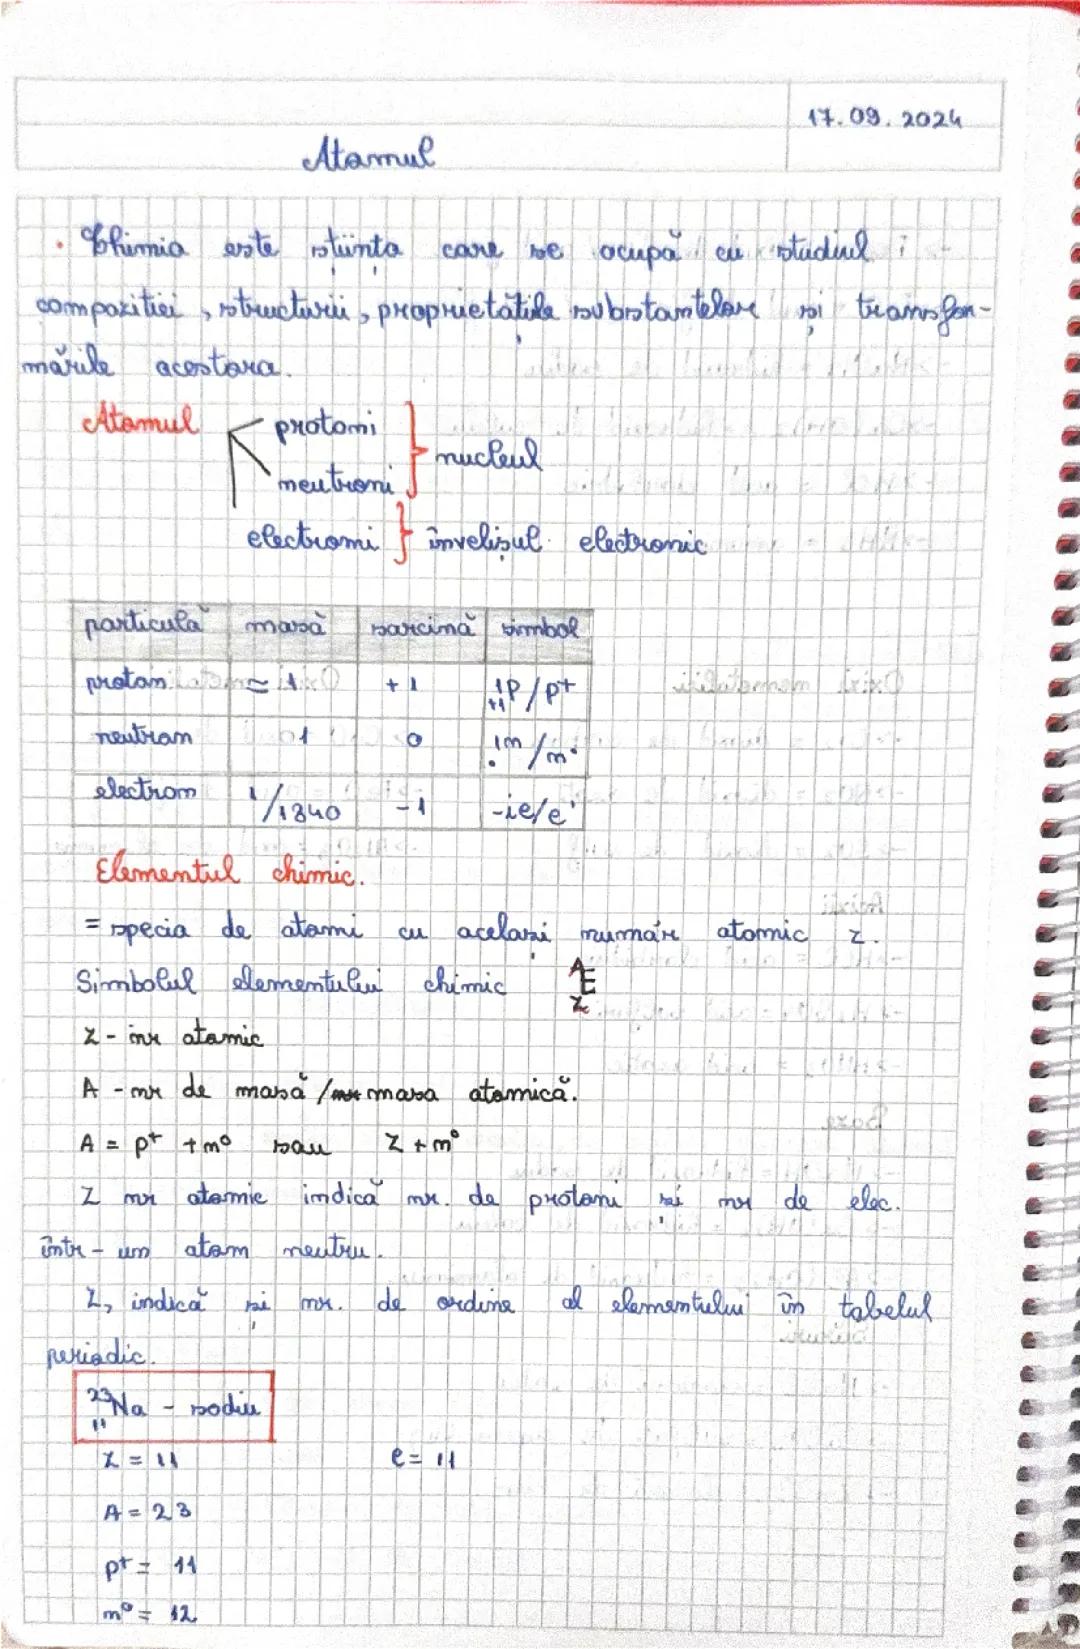 17.09.2024
Atomul
· Chimia este știința care se ocupă cu studiul
compoziției, structurii, proprietățile substanțelor și transfor-
mările acestora.
Atomul
protoni
neutroni
nucleul
electroni
învelișul electronic
particulă masă sarcină simbol
proton ≃ 1 +1 ¹₊₁p/p+
neutron 1 0 ¹₀n/n°
electron 1/1840 -1 -1e/e-
Elementul chimic.
= specia de atomi cu același număr atomic Z.
Simbolul elementului chimic ᴬE Z
Z - nr atomic
A - nr de masă / masa atomică.
A = p+ + n° sau Z + n°
Z nr atomic indică nr. de protoni și nr de elec.
într-un atom neutru.
Z, indică și nr. de ordine al elementului în tabelul
periodic.
²³₁₁Na - sodiu
Z = 11 e = 11
A = 23
p+ = 11
n° = 12